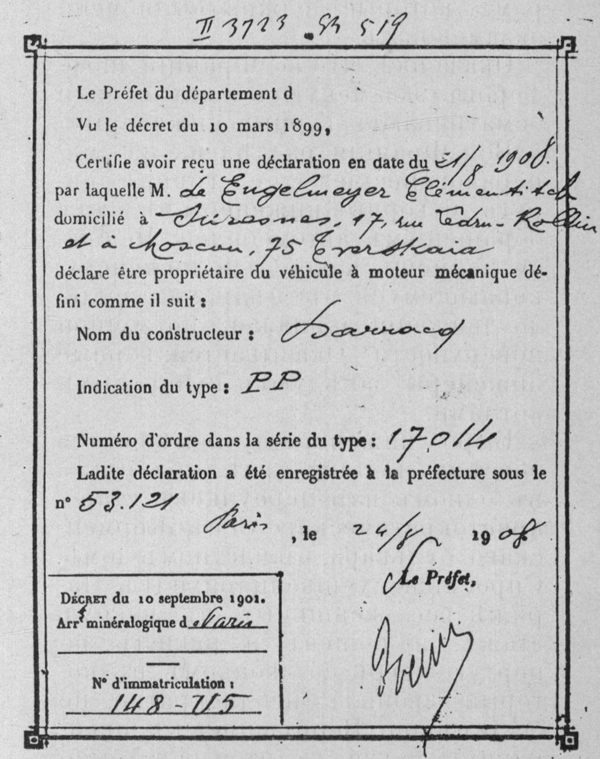 II 3723
519
Le Préfet du département d
Vu le décret du 10 mars 1899,
Certifie avoir reçu une déclaration en date du 21/8 1908.
par laquelle M. de Engelmeyer Clémentitch
domicilié à Suresnes, 17, rue Ledru-Rollin
et à Moscou, 75 Tverskaia
déclare être propriétaire du véhicule à moteur mécanique dé-
fini comme il suit :
Nom du constructeur : Darracq
Indication du type : PP
Numéro d'ordre dans la série du type : 17014
Ladite déclaration a été enregistrée à la préfecture sous le
n° 53.121
Paris, le 24/8 1908
Le Préfet,
DÉCRET du 10 septembre 1901.
Arrt minéralogique d Paris
N° d'immatriculation :
148